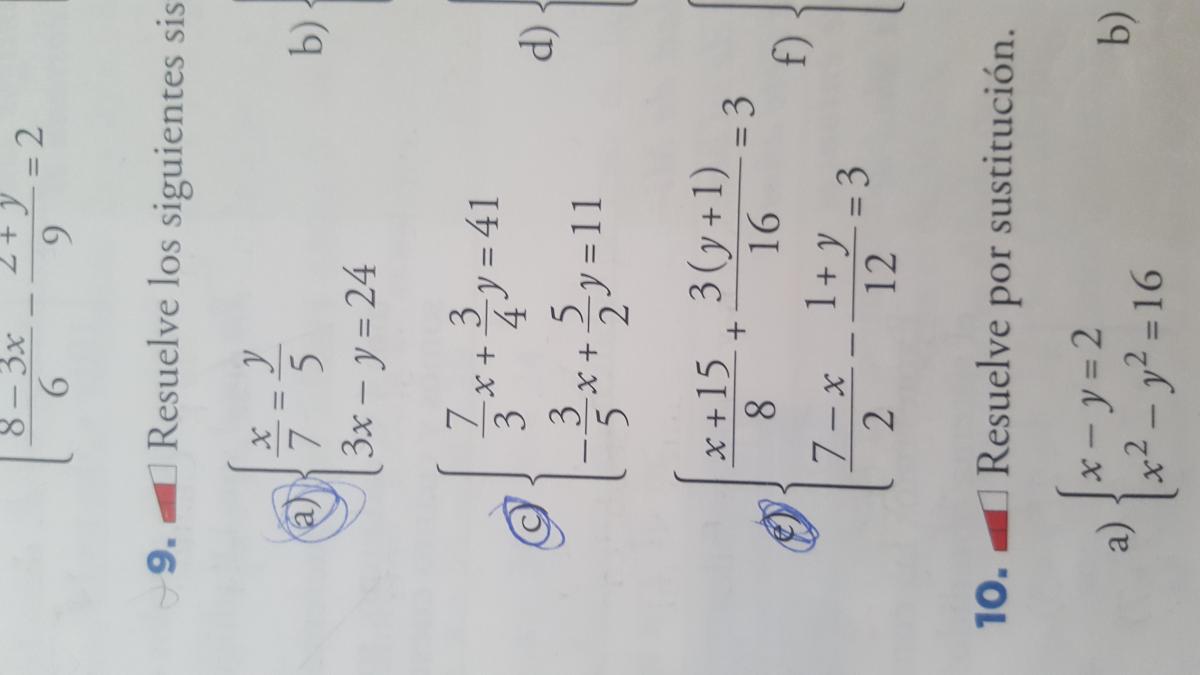 8 − 3x / 6 − 2 + y / 9 = 2
9. Resuelve los siguientes sis
a) { x/7 = y/5 b)
3x − y = 24
c) { 7/3 x + 3/4 y = 41 d)
−3/5 x + 5/2 y = 11
e) { x + 15 / 8 + 3(y + 1) / 16 = 3 f)
7 − x / 2 − 1 + y / 12 = 3
10. Resuelve por sustitución.
a) { x − y = 2 b)
x² − y² = 16